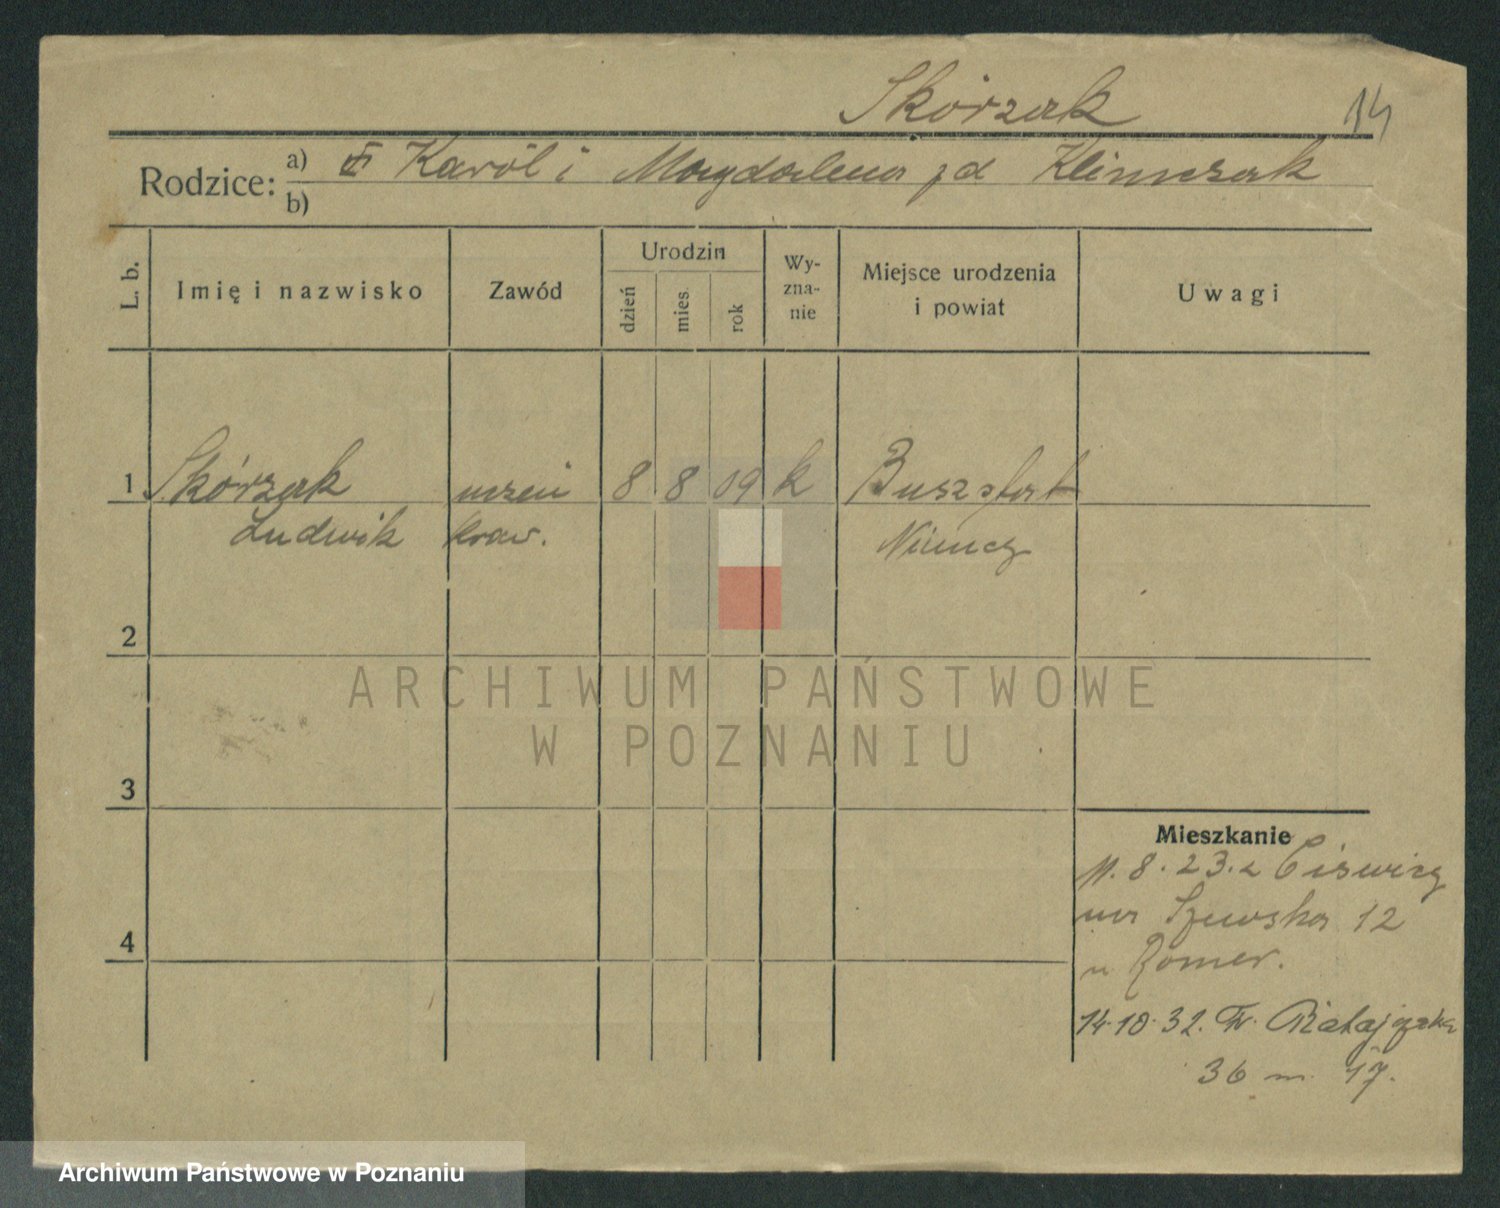 Skórzak 14
Rodzice: a) Karól i Magdalena zd Klimczak
b)
L. b. Imię i nazwisko Zawód Urodzin dzień mies. rok Wyznanie Miejsce urodzenia i powiat Uwagi
1 Skórzak uczeń 8 8 09 k
Ludwik kraw. Niemcy
2
3
4
Mieszkanie
11.8.23. z
na Szewska 12
u Romer.
14.10.32. Fr. Ratajczaka
36 m. 17.
ARCHIWUM PAŃSTWOWE
W POZNANIU
Archiwum Państwowe w Poznaniu